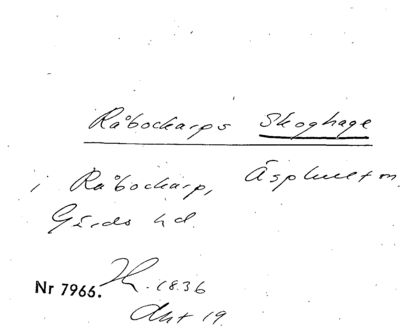 Råbockarps Skoghage
i Råbockarp, Äsphult sn,
Gärds hd.
Nr 7966. 1836
Akt 19.